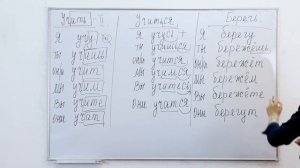 Учить - II Учиться Беречь
Я учу Я учусь Я берегу
Ты учишь Ты учишься Ты бережёшь
учит учится бережёт
Мы учим Мы учимся Мы бережём
Вы учите Вы учитесь Вы бережёте
Они учат Они учатся Они берегут